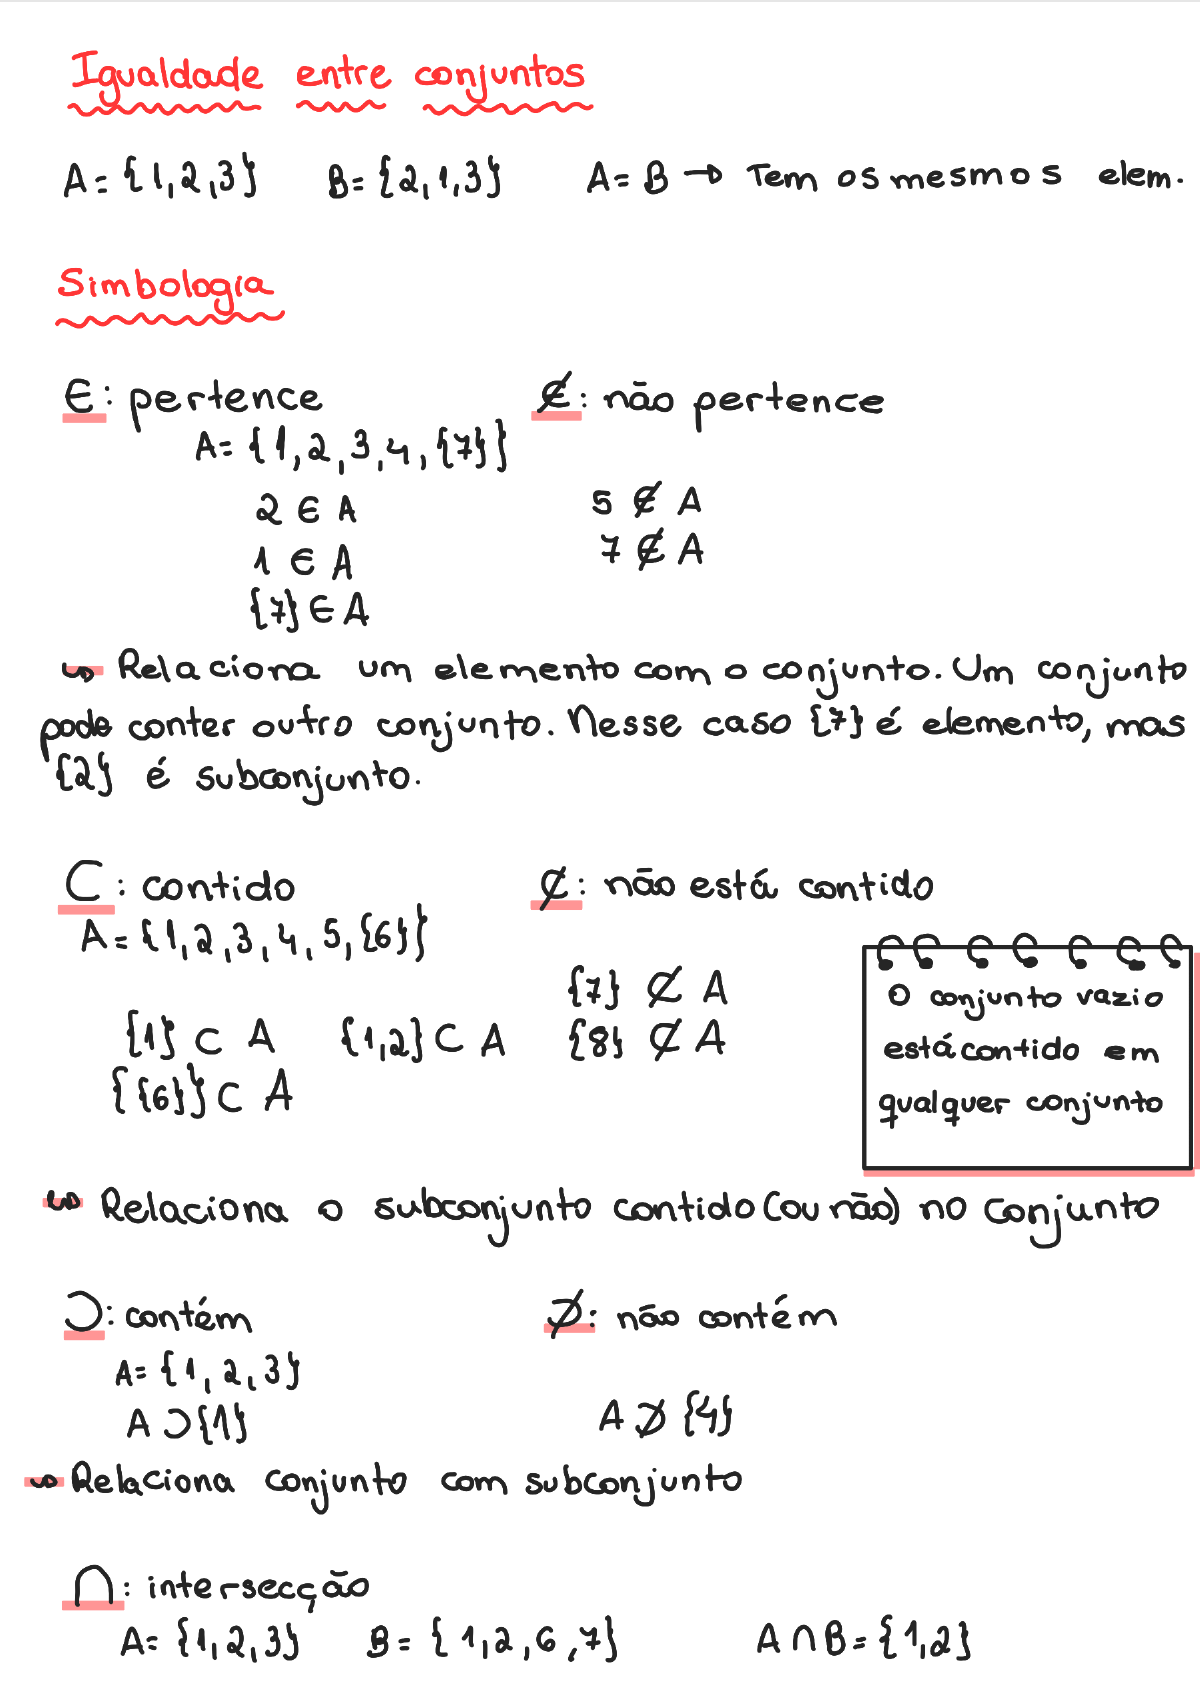 Igualdade entre conjuntos
A = {1, 2, 3} B = {2, 1, 3} A = B → Tem os mesmos elem.
Simbologia
∈: pertence ∉: não pertence
A = {1, 2, 3, 4, {7}}
2 ∈ A 5 ∉ A
1 ∈ A 7 ∉ A
{7} ∈ A
↪ Relaciona um elemento com o conjunto. Um conjunto
pode conter outro conjunto. Nesse caso {7} é elemento, mas
{2} é subconjunto.
⊂: contido ⊄: não está contido
A = {1, 2, 3, 4, 5, {6}}
{7} ⊄ A
{1} ⊂ A {1,2} ⊂ A {8} ⊄ A
{{6}} ⊂ A
O conjunto vazio
está contido em
qualquer conjunto
↪ Relaciona o subconjunto contido (ou não) no conjunto
⊃: contém ⊅: não contém
A = {1, 2, 3}
A ⊃ {1} A ⊅ {4}
↪ Relaciona conjunto com subconjunto
∩: intersecção
A = {1, 2, 3} B = {1, 2, 6, 7} A ∩ B = {1,2}